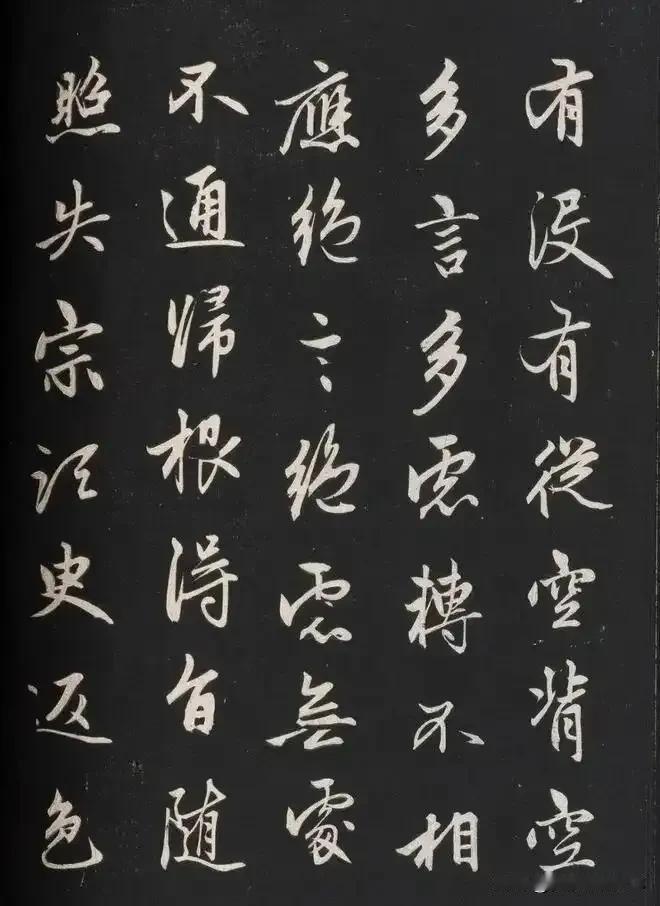 有沒有從空背空
多言多慮轉不相
應絕言絕慮無處
不通歸根得旨隨
照失宗須臾返色